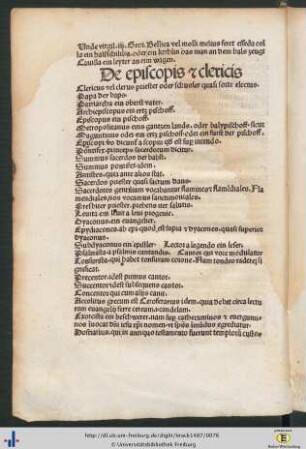 Unde virgil. iij. Geor. Belgica vel molli melius feret esseda collo
Camilla ein leyter an eim wagen.
De episcopis & clericis
Clericus vel clerus priester oder schuler quasi sorte electus.
Papa der baps.
Patriarcha ein oberst vater.
Archiepiscopus ein ertz pischoff.
Episcopus ein pischoff.
Metropolitanus eins gantzen lands. oder
Maguntinus oder ein ertz pischoff oder ein furst der pischoff.
Episcopus
Pontifex princeps sacerdotum dicitur.
Summus sacerdos der babst.
Summus pontifex idem.
Antistes. quia ante alios stat.
Sacerdos priester quasi sacrum dans.
Sacerdotes gentilium vocabantur flamines & flamidiales. Fla
mendiales, non vocamus sanctimoniales.
Presbiter priester. prebens iter salutis.
Leuita ein a leui progenie.
Dyaconus. ein euangelier.
Epydiaconus ab epi quod est supra & dyaconus. quasi superior
dyaconus.
Subdyaconus ein epistler. Lector a legendo ein leser.
Psalmista a psalmis cantandis. Cantor qui voce modulator
Tonsurista. qui habet tonsuram corone. Nam tondeo radere si
gnificat.
Precentor. idest primus cantor.
Succentor idest subsequens cantor.
Concentor qui cum alijs canit.
Acolitus grecum est Ceroferarius idem. quia debet circa lectu
ram euangelij ferre cereum. candelam.
Exorcista ein beschwerer. nam sup cathecuminos & energumi
nos
Hostiarius. qui in antiquo testamento fuerunt templorum custo
http://dl.ub.uni-freiburg.de/diglit/brack1487/0076
© Universitätsbibliothek Freiburg